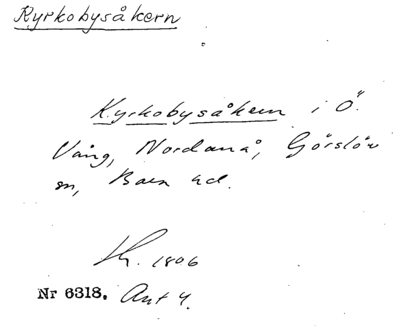 Kyrkobysåkern
Kyrkobysåkern i Ö.
Vång, Nordanå, Görslöv
sn, Bara hd.
1806
Nr 6318. Akt 4.